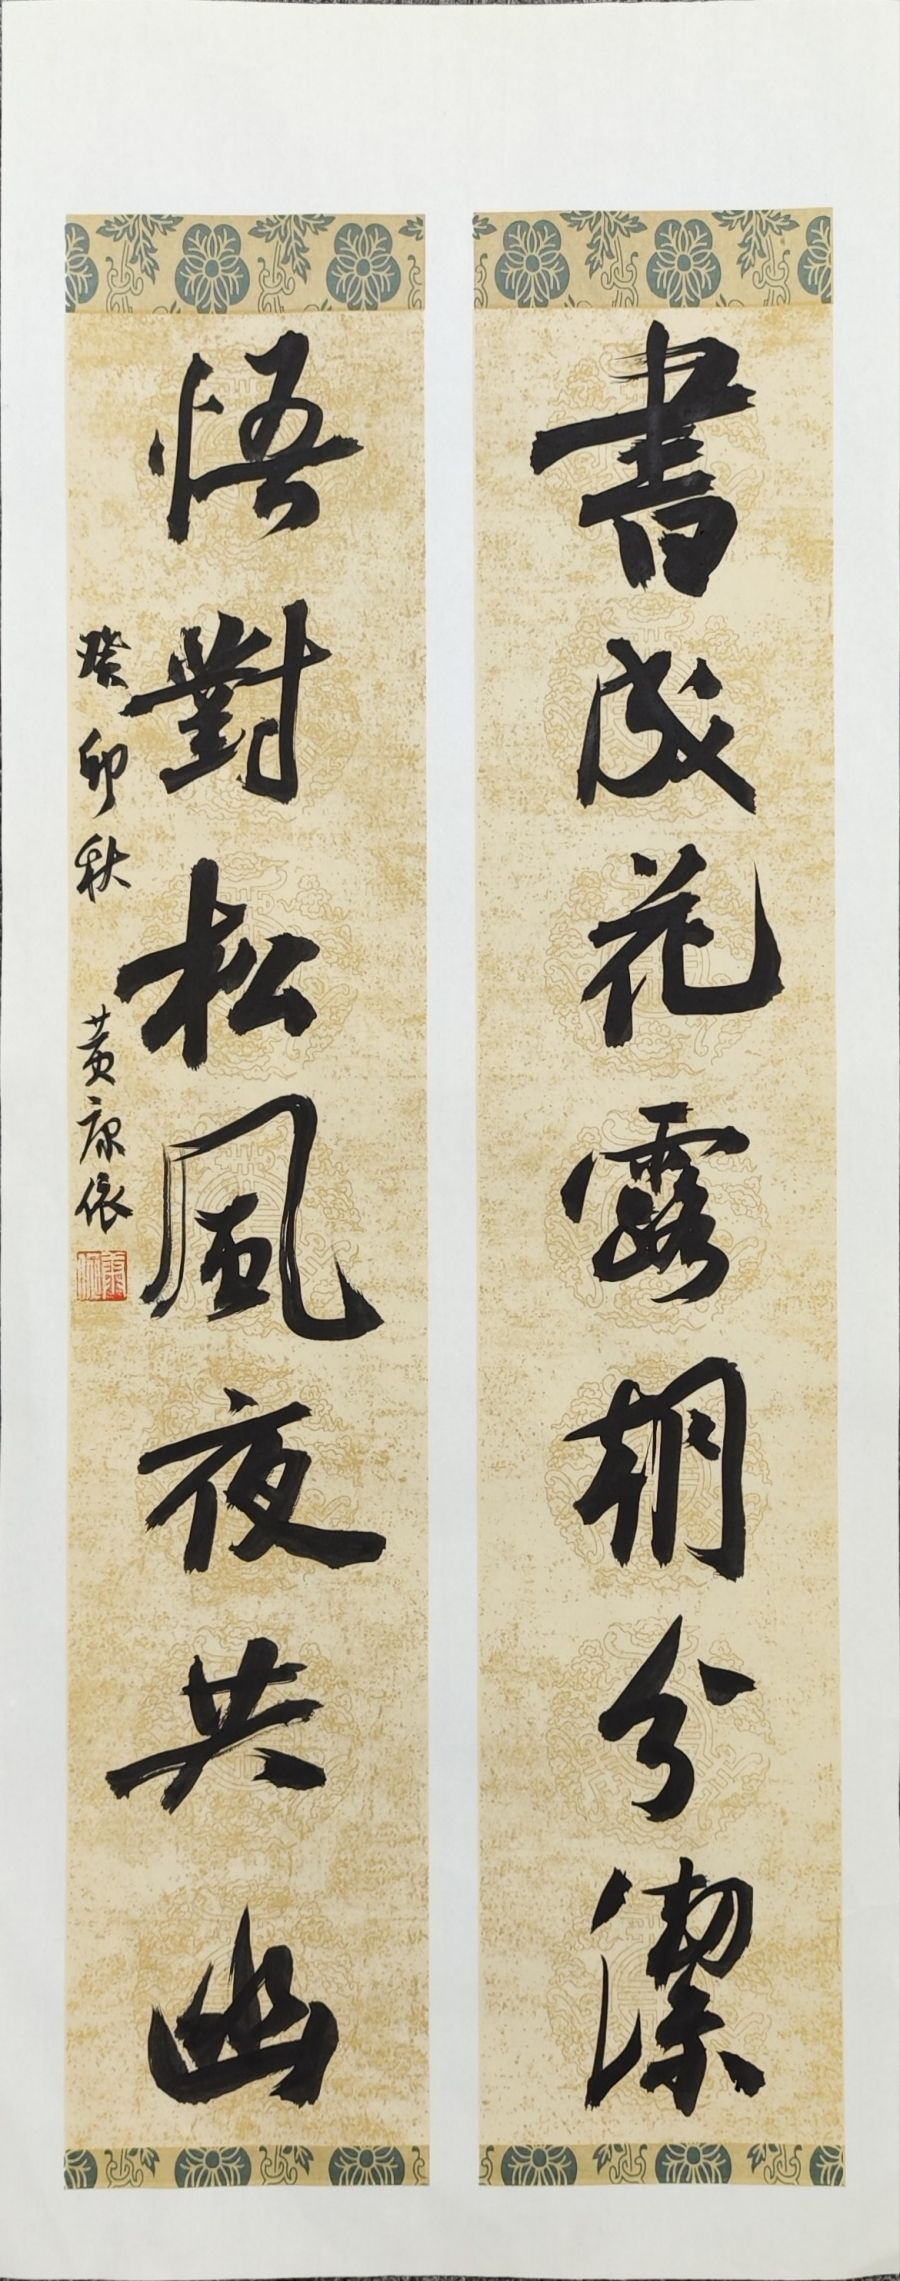 書成花露朝分潔
悟對松風夜共幽
癸卯秋 黃康依